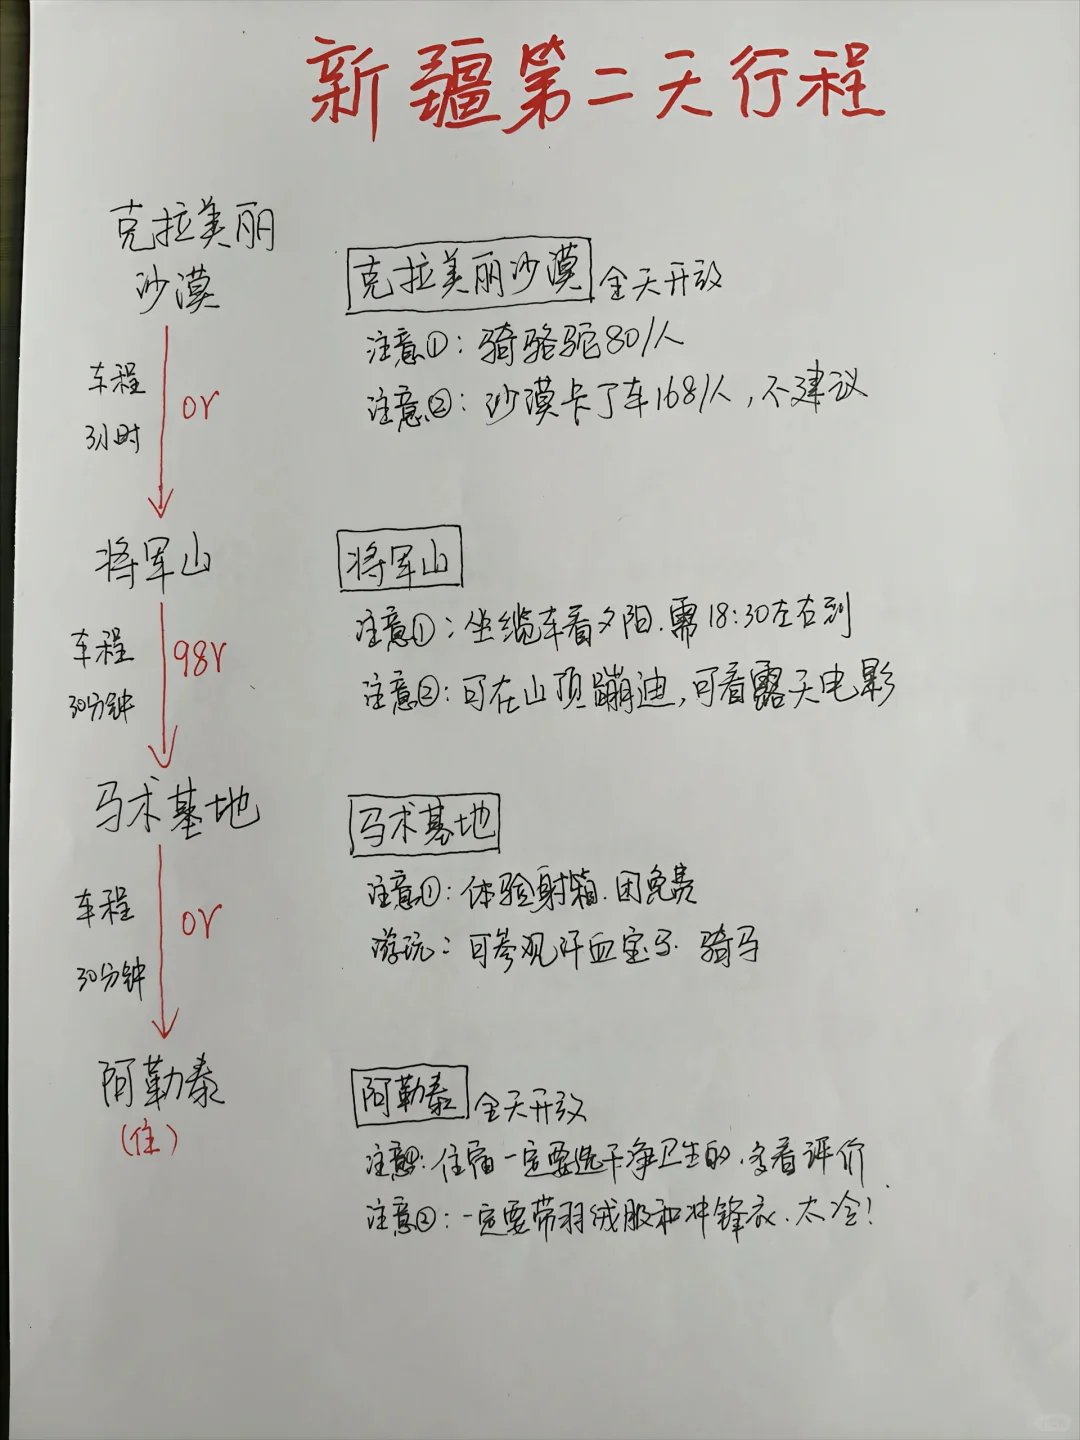 新疆第二天行程
克拉美丽
沙漠
车程
3小时
0r
将军山
车程
30分钟
98r
马术基地
车程
30分钟
0r
阿勒泰
(住)
克拉美丽沙漠 全天开放
注意①：骑骆驼80/人
注意②：沙漠卡丁车168/人，不建议
将军山
注意①：坐缆车看夕阳.需18:30左右到
注意②：可在山顶蹦迪，可看露天电影
马术基地
注意①：体验射箭.团免费
游玩：可参观汗血宝马.骑马
阿勒泰 全天开放
注意①：住宿一定要选干净卫生的.多看评价.
注意②：一定要带羽绒服和冲锋衣.太冷!